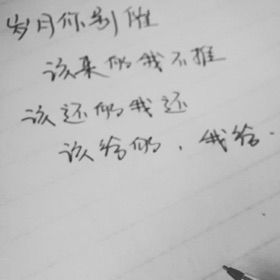 岁月你别催
该来的我不推
该还的我还
该给的，我给.